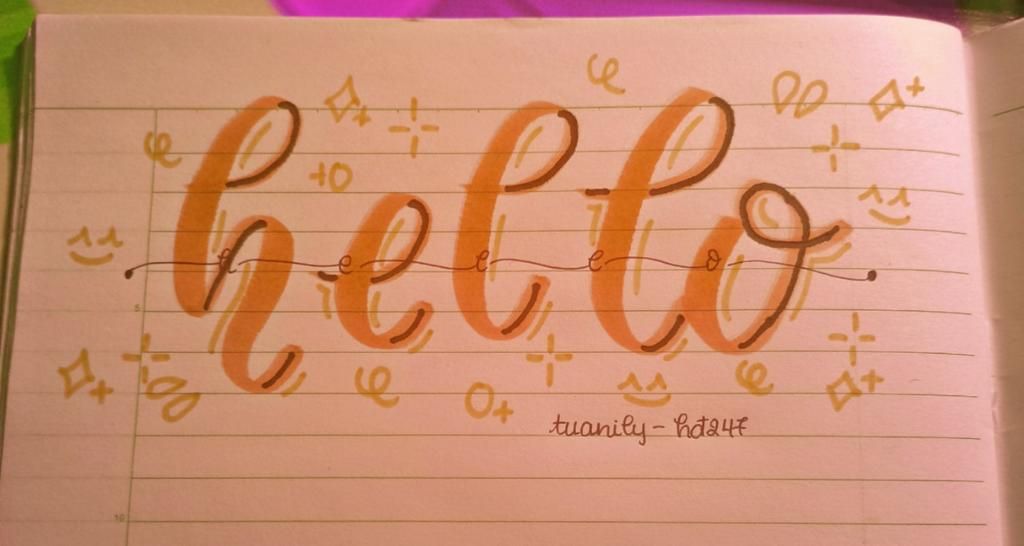 hello
hello
tuanily - hdt247
5
10